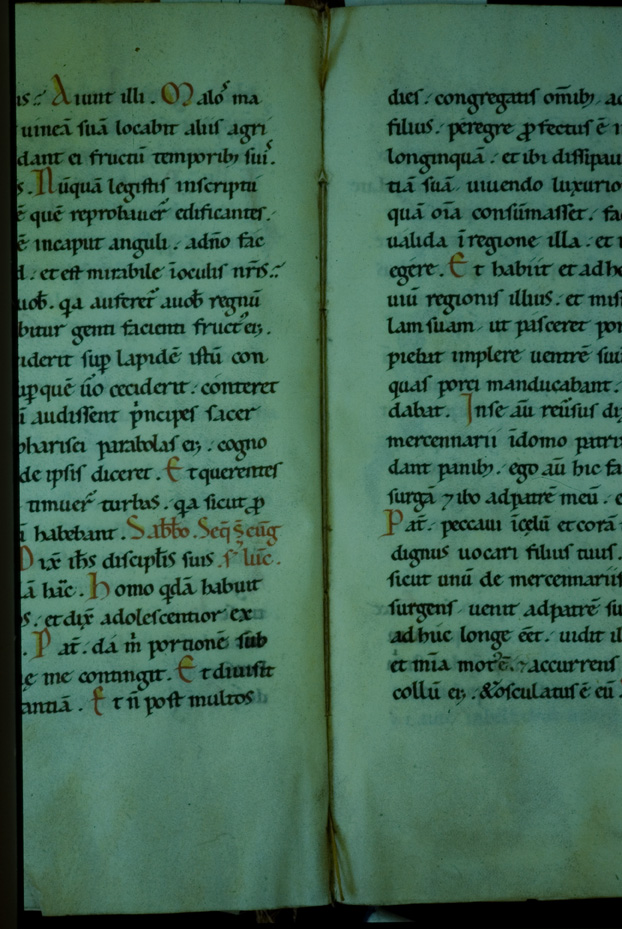 is. Aiunt illi. Malos ma
uineā suā locabit aliis agri
dant ei fructū temporib; suis.
s. Nūquā legistis inscriptu
ē quē reprobauer̄ edificantes.
ē incaput anguli. adn̄o fac
d. et est mirabile īoculis nr̄is.
uob̄. qa auferet᷑ auob̄ regnū
bitur genti facienti fruct᷒ ei;.
iderit sup̄ lapidē istū con
up̄ quē ūo ceciderit. conteret
ū audissent pͥncipes sacer
pharisei parabolas ei;. cogno
de ipsis diceret. Et querentes
timuer̄ turbas. qa sicut ꝓ
ū habebant. Sabb̄o. Seq̄
Dix̄ ih̄s discipl̄is suis. luc̄.
ā hāc. Homo qdā habuit
s. et dix̄ adolescentior ex
. Pat̄. da m̄ portionē sub
e me contingit. Et diuisit
antiā. Et n̄ post multos
dies. congregatis om̄ib; ad
filius. peregre ꝓfectus ē
longinquā. et ibi dissipau
tiā suā uiuendo luxurio
quā oīa consūmasset. fa
ualida īregione illa. et
egere. Et habiit et adhe
uiū regionis illius. et mis
lam suam ut pasceret por
piebat implere uentrē suū
quas porci manducabant.
dabat. Inse aū reūsus di
mercennarii īdomo patri
dant panib;. ego aū hic fa
surgā ⁊ ibo adpatrē meū. e
Pat̄. peccaui īcelū et corā
dignus uocari filius tuus.
sicut unū de mercennariis
surgens uenit adpatrē su
adhuc longe eēt. uidit il
et mīa mot᷒ ē. ⁊ accurrens
collū ei;. & osculatus ē eū.